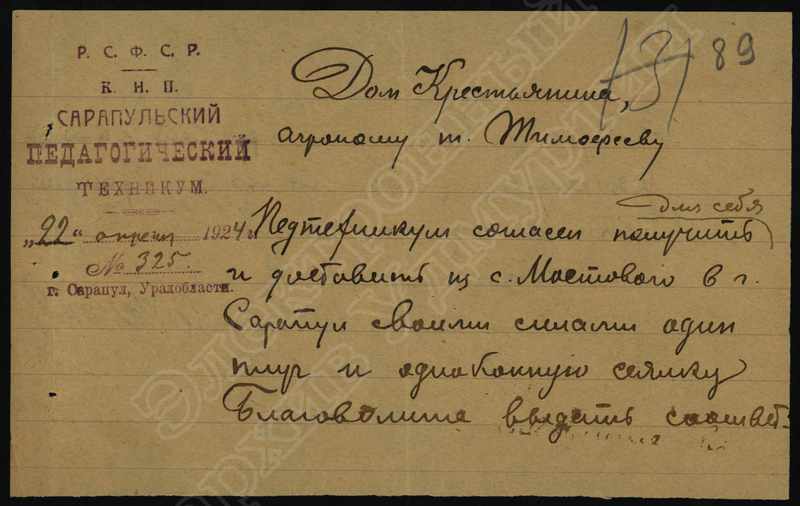 Р. С. Ф. С. Р.
К. Н. П.
САРАПУЛЬСКИЙ
ПЕДАГОГИЧЕСКИЙ
ТЕХНИКУМ.
„22“ апреля 1924 г.
№ 325.
г. Сарапул, Уралобласти.
131 89
Дом Крестьянина,
агроному т. Тимофееву
для себя
Педтехникум согласен получить
и доставить из с. Мостового в г.
Сарапул своими силами один
плуг и одноконную сеялку
Благоволите выдать соответ-